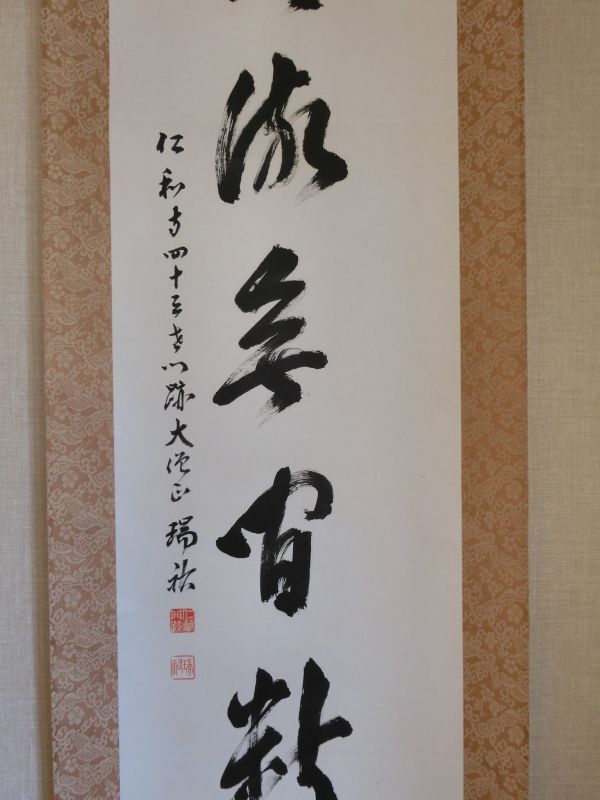 流無間断
仁和寺四十三世門跡大僧正 瑞祐